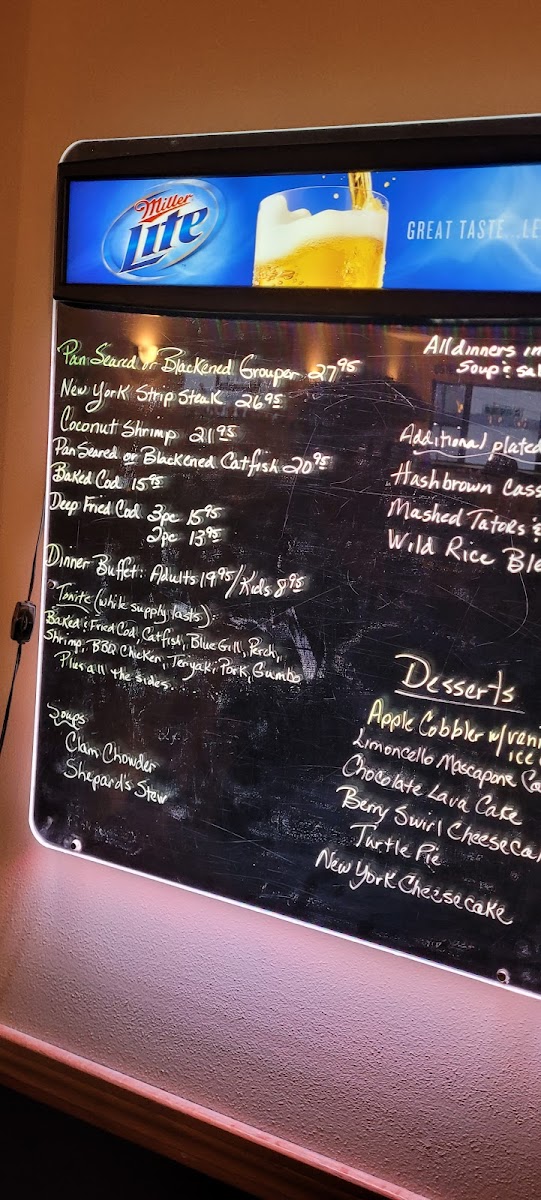 Miller
Lite
GREAT TASTE...LE
Pan Seared or Blackened Grouper 27 95
New York Strip Steak 26 95
Coconut Shrimp 21 95
Pan Seared or Blackened Catfish 20 95
Baked Cod 15 95
Deep Fried Cod 3pc 15 95
2pc 13 95
Dinner Buffet: Adults 19 95/Kids 8 95
Tonite (while supply lasts):
Baked & Fried Cod, Catfish, Blue Gill, Perch,
Shrimp, BBQ Chicken, Teriyaki Pork, Gumbo
Plus all the sides...
Soups
Clam Chowder
Shepard's Stew
All dinners in
Soup & sal
Additional plated
Hashbrown Cass
Mashed Tators &
Wild Rice Ble
Desserts
Apple Cobbler w/vani
ice
Limoncello Mascapone Ca
Chocolate Lava Cake
Berry Swirl Cheesecak
Turtle Pie
New York Cheesecake